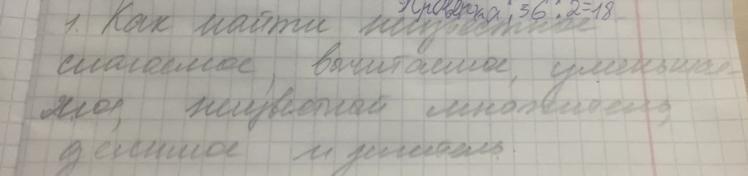 Проверка: 36:2=18
1. Как найти неизвестное
слагаемое, вычитаемое, уменьшае-
мое, неизвестный множитель,
делимое и делитель.